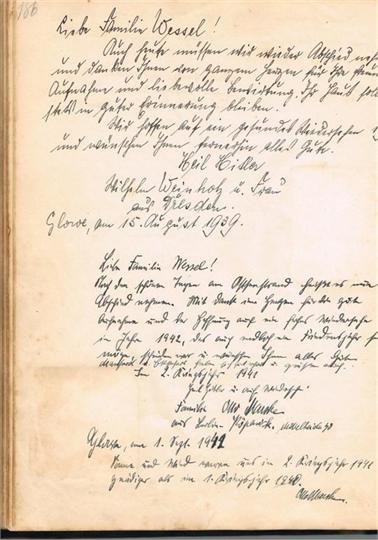 186
Liebe Familie Wessel!
Auch heute müssen wir wieder Abschied neh
und danken Ihnen von ganzem Herzen für Ihre
Aufnahme und liebevolle Bewirtung. Ihr Haus soll
stets in guter Erinnerung bleiben.
Wir hoffen auf ein gesundes Wiedersehen
und wünschen Ihnen fernerhin alles Gute.
Heil Hitler
Wilhelm Weinholz u. Frau
aus Dresden.
Glowe, am 15. August 1939.
Liebe Familie Wessel!
Nach den schönen Tagen am Ostseestrand heißt es nun
Abschied nehmen. Mit Dank im Herzen für die gute
Aufnahme und der Hoffnung auf ein frohes Wiedersehen
im Jahre 1942, das auch endlich ein Friedensjahr
mögen scheiden wir u. wünschen Ihnen alles Gute
Im 2. Kriegsjahr 1941
Heil Hitler u. auf Wiedersehn
Familie Otto
aus Berlin
Glowe, am 1. Sept. 1941
Sonne und Wind waren uns im 2. Kriegsjahr 1941
gnädiger als im 1. Kriegsjahr 1940.